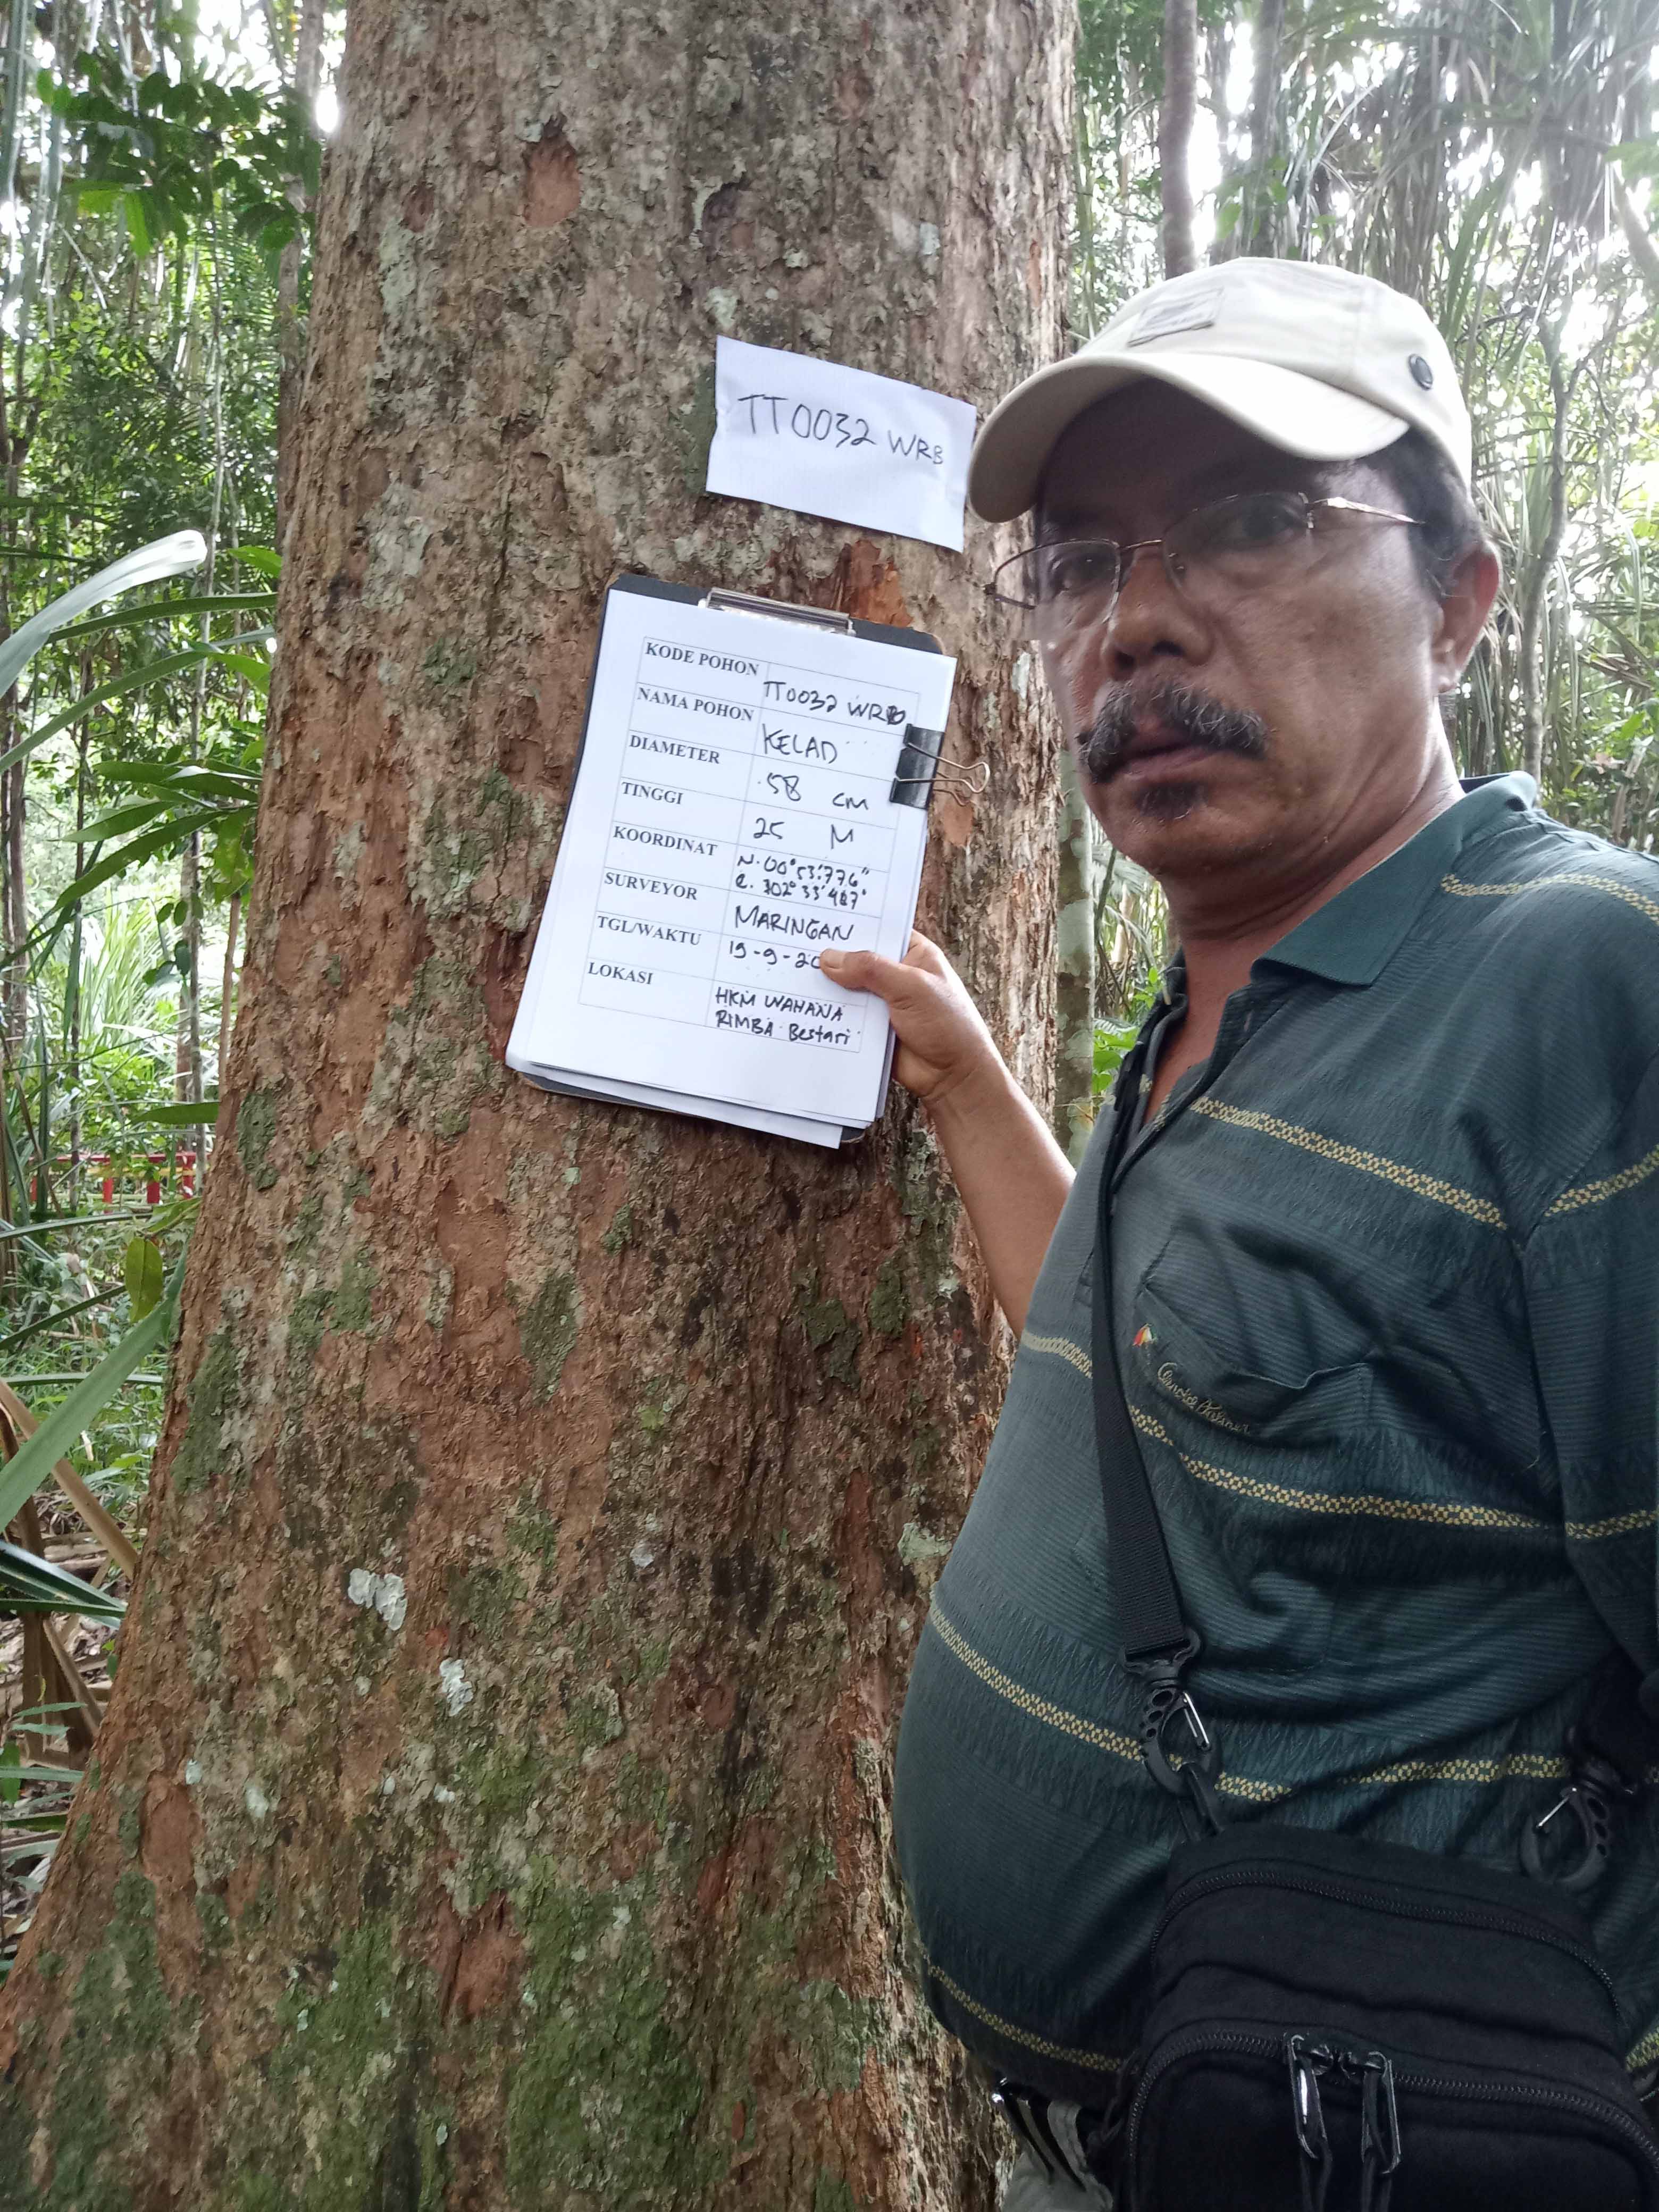 TT0032 WRB
KODE POHON TT0032 WRB
NAMA POHON KELAD
DIAMETER 58 CM
TINGGI 25 M
KOORDINAT N. 00° 53' 776"
E. 102° 33' 467"
SURVEYOR MARINGAN
TGL/WAKTU 19-9-20
LOKASI HKM WAHANA
RIMBA Bestari
Arnold Palmer